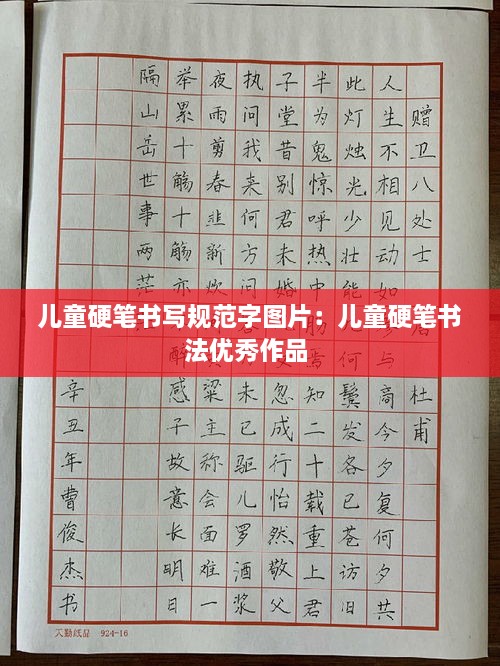 赠卫八处士 杜甫
人生不相见动如与商今夕复何夕共
此灯烛光少壮能何鬓发各已苍访旧
半为鬼惊呼热中焉知二十载重上君
子堂昔别君未婚忽成行怡然敬父
执问我来何方问未已驱儿罗酒浆
夜雨剪春韭新炊粱主称会面难一
举累十觞十觞亦醉感子故意长明日
隔山岳世事两茫
辛丑年曹俊杰书
儿童硬笔书写规范字图片：儿童硬笔书
法优秀作品
天勤纸品 924-16